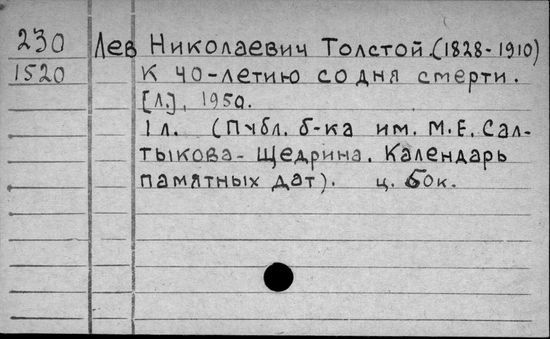 230 Лев Николаевич Толстой (1828-1910)
1520 К 40-летию со дня смерти.
[Л.], 1950.
1 л. (Публ. б-ка им. М.Е. Сал-
тыкова-Щедрина. Календарь
памятных дат). ц. 60к.